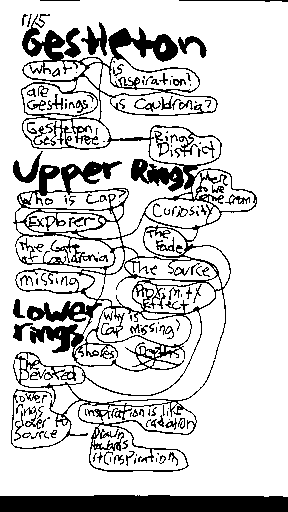 11/5
Gestleton
What?
is
inspiration?
are
Gestlings?
is Cauldronia?
Gestleton,
Gestletree
Rings
District
Upper Rings
Where
do we
come from?
Who is Cap
Curiosity
Explorers
The
Fade
The Gate
of Cauldronia
The Source
missing
Proximity
Effect
Lower
rings
Why is
Cap Missing?
Shores
The
Devoted
lower
rings
closer to
source
inspiration is like
radiation
Drawn
towards
it (inspiration)